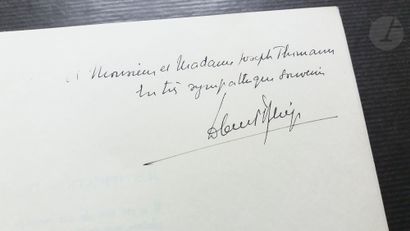 à Monsieur et Madame Joseph Thomann
en très sympathique souvenir